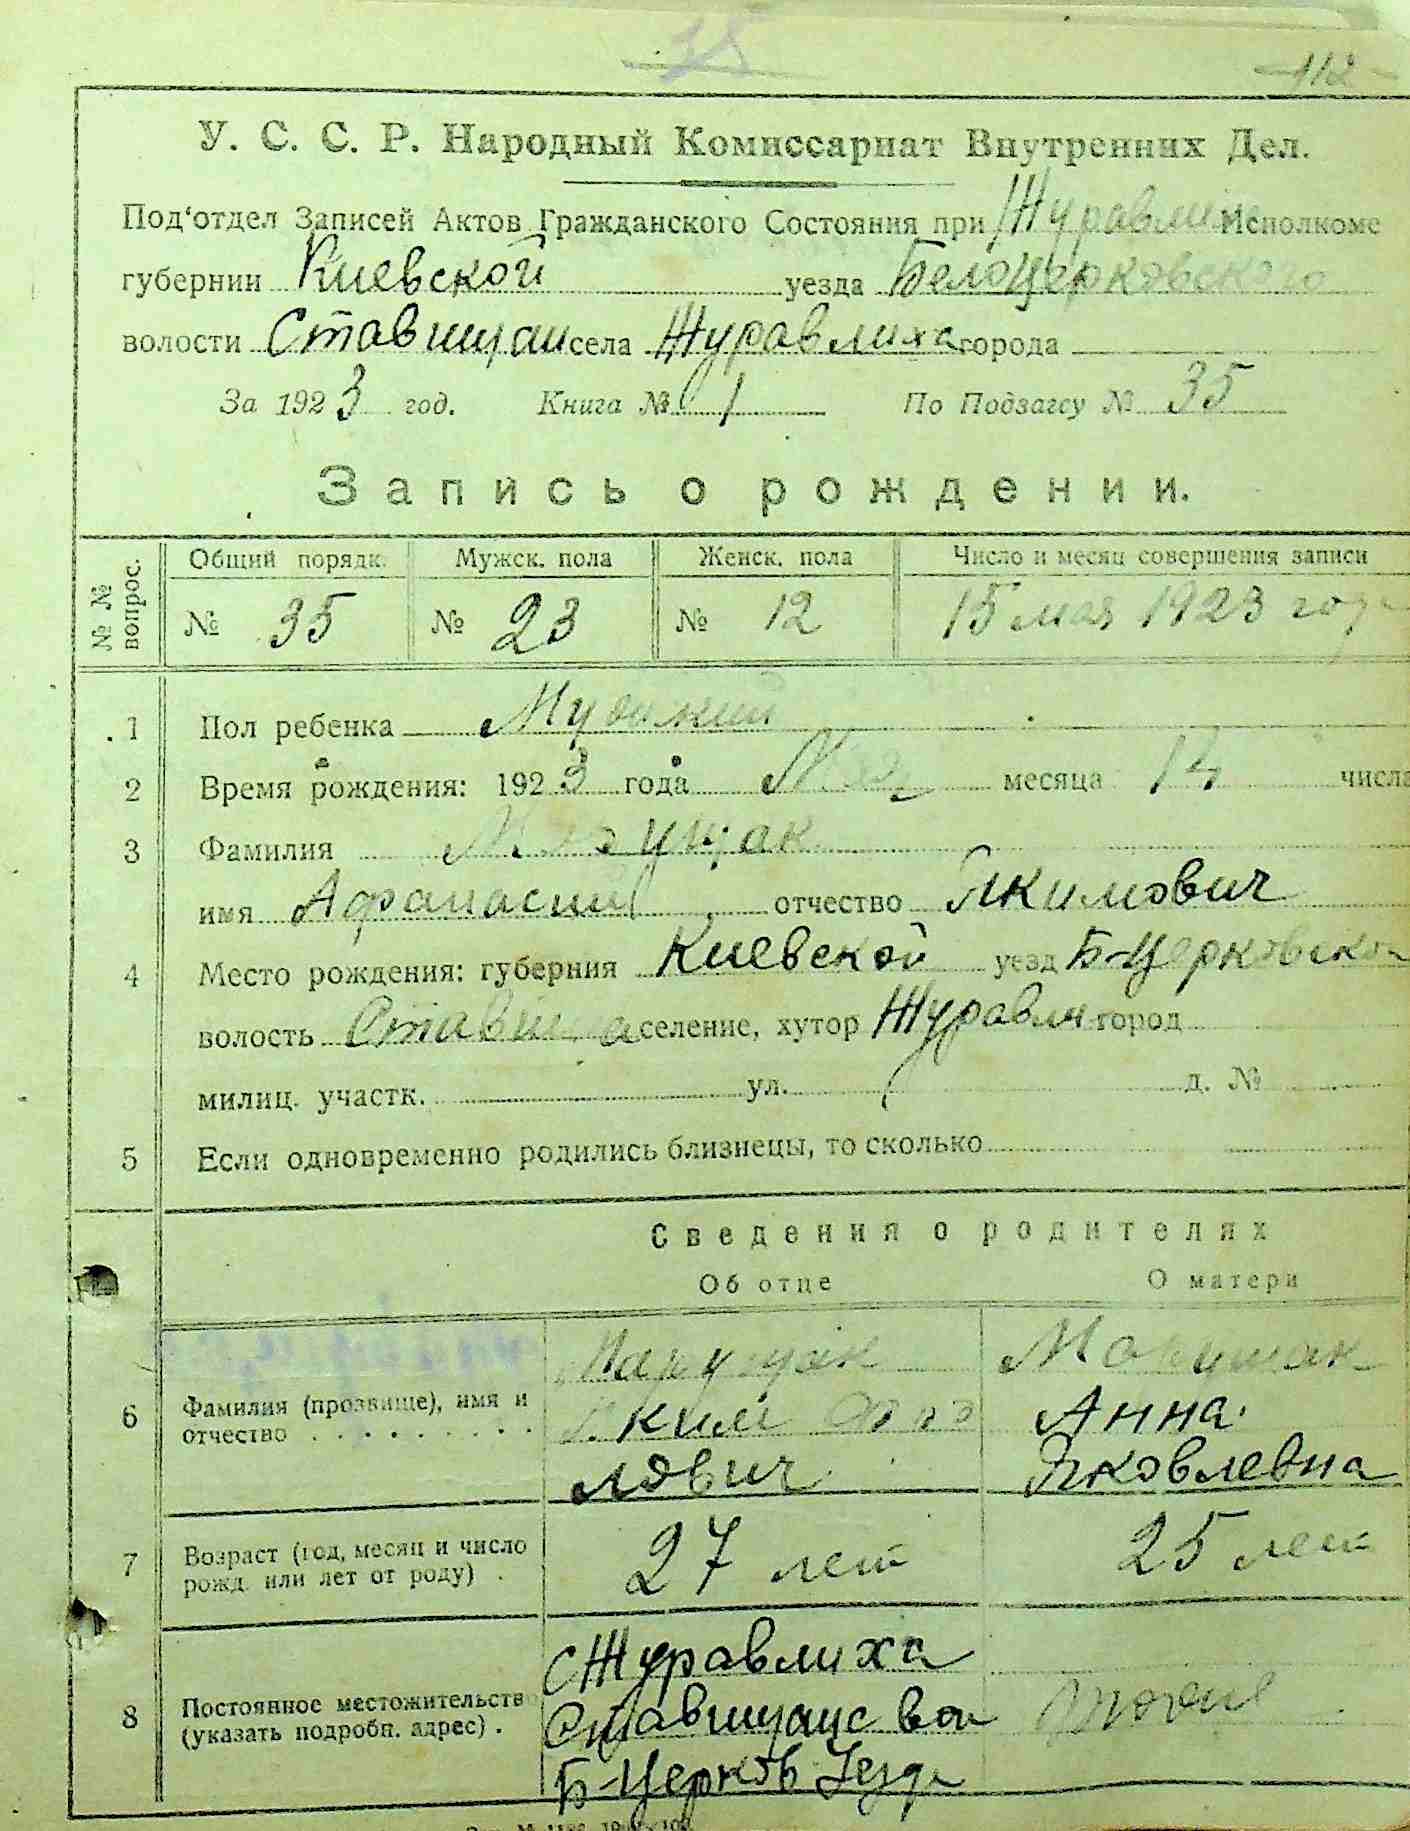 35
112
У. С. С. Р. Народный Комиссариат Внутренних Дел.
Под'отдел Записей Актов Гражданского Состояния при Журавлих Исполкоме
губернии Киевской уезда Белоцерковского
волости Ставищан села Журавлиха города
За 1923 год. Книга № 1 По Подзагсу № 35
Запись о рождении.
№ № вопрос. Общий порядк. Мужск. пола Женск. пола Число и месяц совершения записи
№ 35 № 23 № 12 15 мая 1923 год
1 Пол ребенка Мужский
2 Время рождения: 1923 года Мая месяца 14 числа
3 Фамилия Марущак
имя Афанасий отчество Якимович
4 Место рождения: губерния Киевской уезд Б-Церковско
волость Ставища селение, хутор Журавли город
милиц. участк. ул. д. №
5 Если одновременно родились близнецы, то сколько
Сведения о родителях
Об отце О матери
6 Фамилия (прозвище), имя и отчество Марущак Марущак
Яким Анна
лович Яковлевна
7 Возраст (год, месяц и число рожд. или лет от роду) 27 лет 25 лет
8 Постоянное местожительство (указать подробн. адрес) с Журавлиха
Ставищанс вол тоже
Б-Церков Уезда